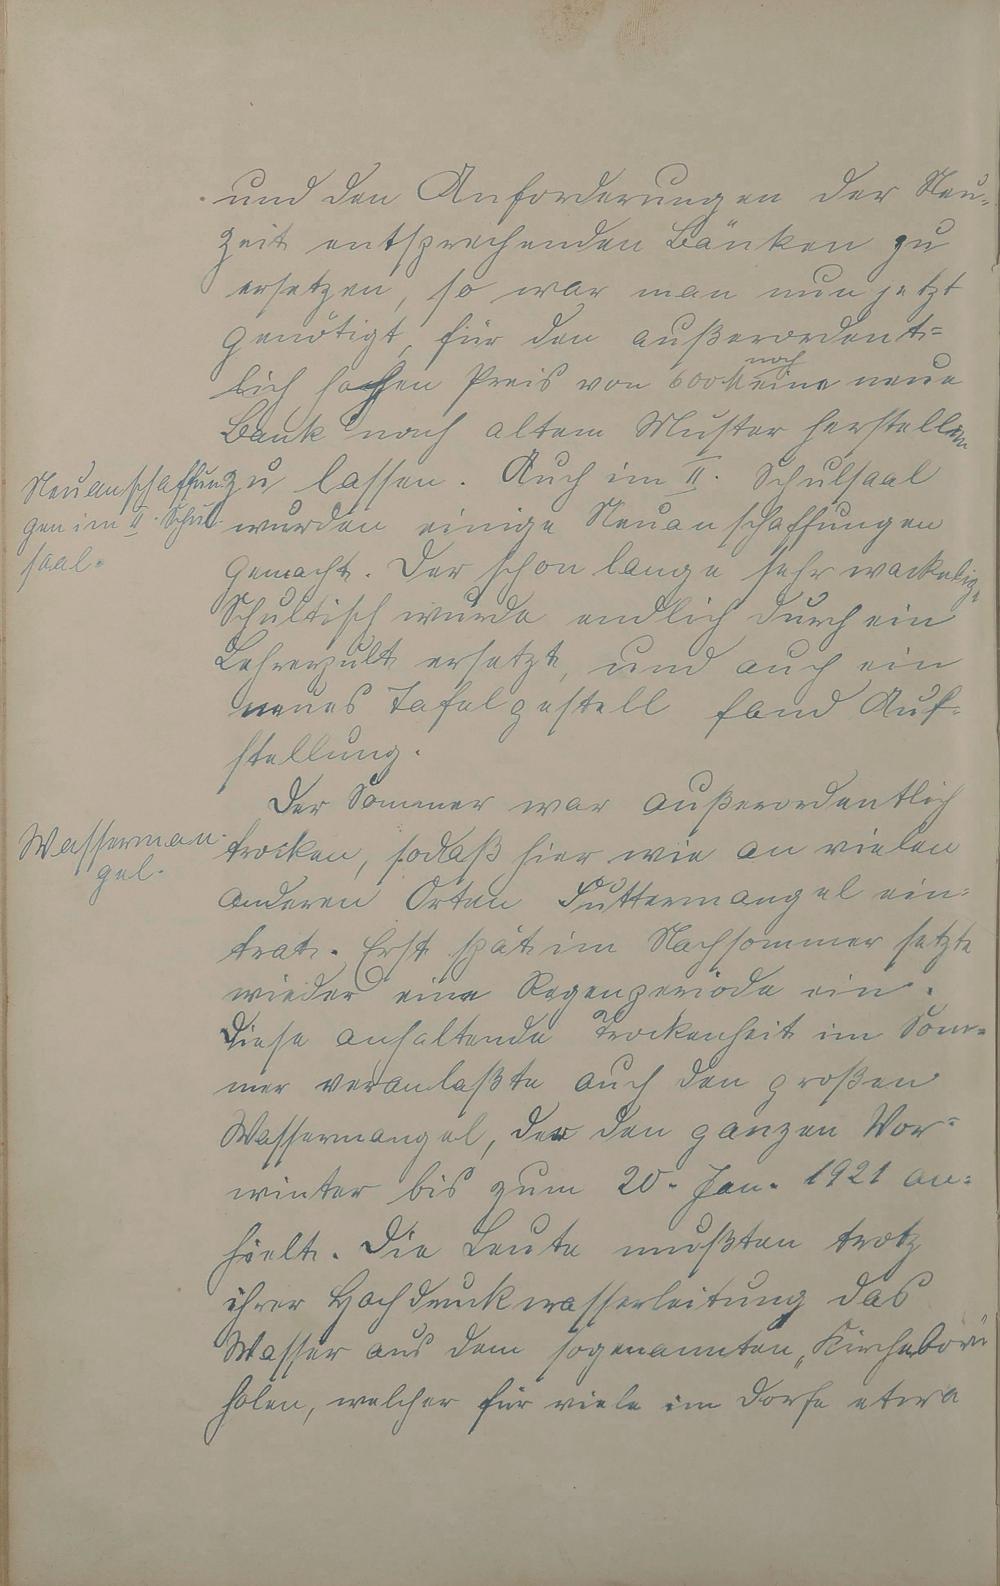 und den Anforderungen der Neu-
zeit entsprechenden Bänken zu
ersetzen, so war man nun jetzt
genötigt, für den außerordent-
lich hohen Preis von 600 M noch eine neue
Bank nach altem Muster herstellen
Neuanschaffun-
gen im II. Schul-
saal.
zu lassen. Auch im II. Schulsaal
wurden einige Neuanschaffungen
gemacht. Der schon lange sehr wackelig.
Schultisch wurde endlich durch ein
Lehrerpult ersetzt, und auch ein
neues Tafelgestell fand Auf-
stellung.
Der Sommer war außerordentlich
Wasserman-
gel.
trocken, sodaß hier wie an vielen
anderen Orten Futtermangel ein-
trat. Erst spät im Nachsommer setzte
wieder eine Regenperiode ein.
Diese anhaltende Trockenheit im Som-
mer veranlaßte auch den großen
Wassermangel, der den ganzen Vor-
winter bis zum 20. Jan. 1921 an-
hielt. Die Leute mußten trotz
ihrer Hochdruckwasserleitung das
Wasser aus dem sogenannten
holen, welcher für viele im Dorfe etwa